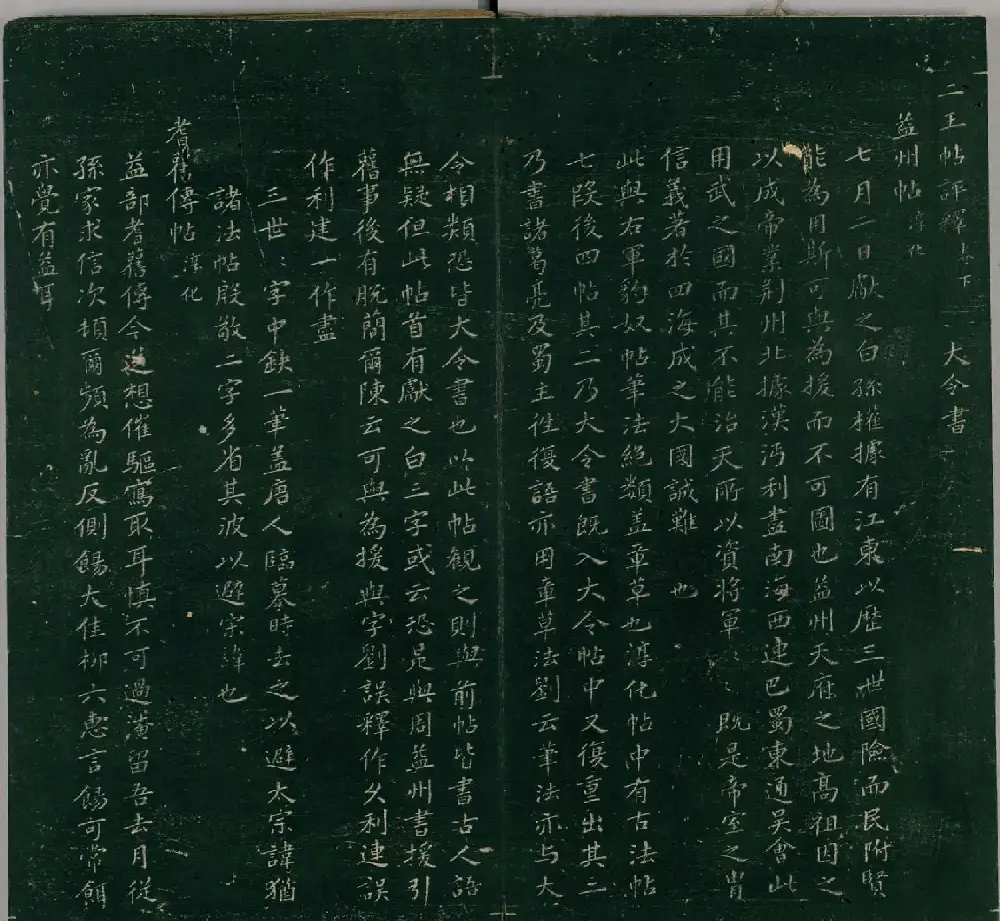 二王帖評釋卷下 大令書
益州帖淳化
七月二日獻之白孫權據有江東以歷三世國險而民附賢
能為用斯可與為援而不可圖也益州天府之地高祖因之
以成帝業荊州北據漢沔利盡南海西連巴蜀東通吳會此
用武之國而其不能治天所以資將軍 既是帝室之胄
信義著於四海成之大國誠難 也
此與右軍豹奴帖筆法絕類盖章草也淳化帖中有古法帖
七段後四帖其二乃大令書既入大令帖中又復重出其二
乃書諸葛亮及蜀主往復語亦用章草法劉云筆法亦与大
令相類恐皆大令書也以此帖観之則與前帖皆書古人語
無疑但此帖首有獻之白三字或云恐是與周益州書援引
舊事後有脫簡爾陳云可與為援與字劉誤釋作久利連誤
作利建一作盡
三世：字中缺一筆盖唐人臨摹時去之以避太宗諱猶
諸法帖殷敬二字多省其波以避宋諱也
耆舊傳帖淳化
益部耆舊傳今送想催驅寫取耳慎不可過淹留吾去月從
孫家求信次頓爾頻為亂反側餳大佳柳六惠言餳可常餌
亦覺有益耳